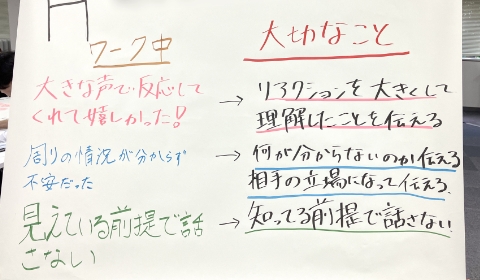 ワーク中
大切なこと
大きな声で反応して
くれて嬉しかった!
→ リアクションを大きくして
理解したことを伝える
周りの情況が分からず
不安だった
→ 何が分からないのか伝える
相手の立場になって伝える.
見えている前提で話
さない
→ 知ってる前提で話さない